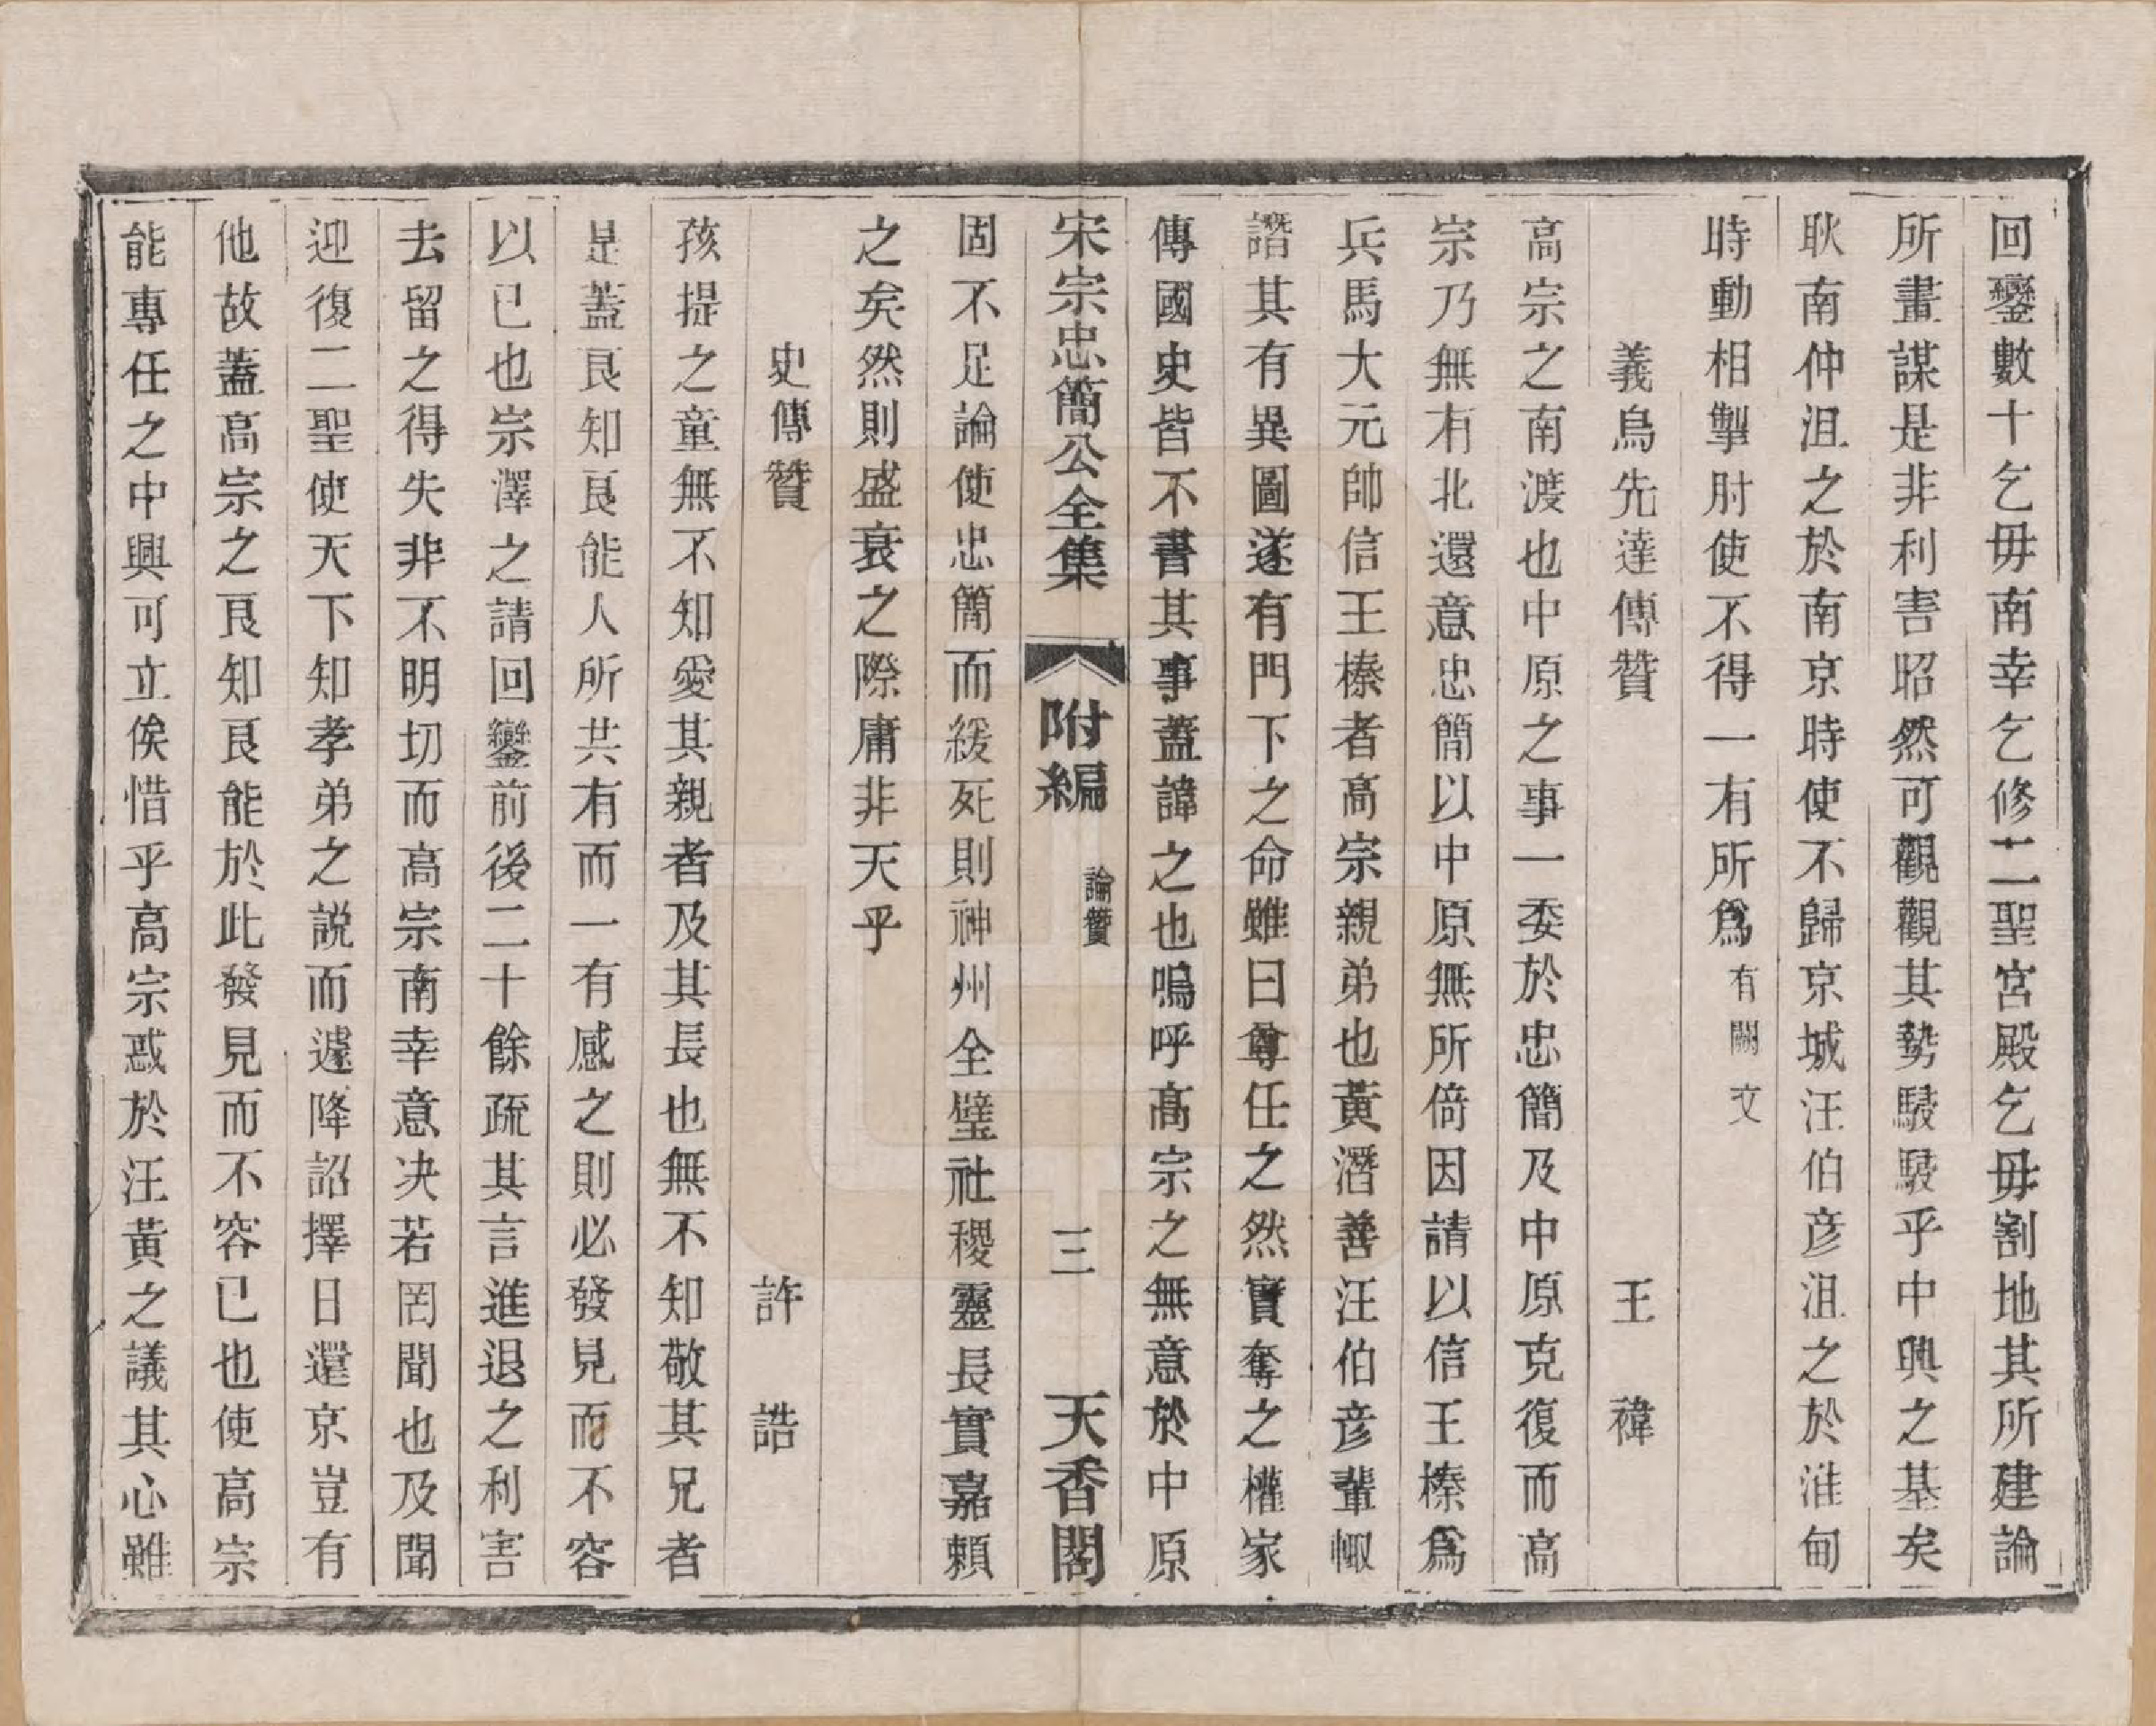 回鑾數十乞毋南幸乞修二聖宮殿乞毋割地其所建論
所畫謀是非利害昭然可觀觀其勢駸駸乎中興之基矣
耿南仲沮之於南京時使不歸京城汪伯彦沮之於淮甸
時動相掣肘使不得一有所爲有闕文
義烏先達傳贊 王禕
高宗之南渡也中原之事一委於忠簡及中原克復而高
宗乃無有北還意忠簡以中原無所倚因請以信王榛爲
兵馬大元帥信王榛者高宗親弟也黃潛善汪伯彦輩輙
譖其有異圖遂有門下之命雖曰尊任之然實奪之權家
傳國史皆不書其事蓋諱之也嗚呼高宗之無意於中原
宋宗忠簡公全集 附編 論贊 三 天香閣
固不足論使忠簡而緩死則神州全璧社稷靈長實嘉賴
之矣然則盛衰之際庸非天乎
史傳贊 許誥
孩提之童無不知愛其親者及其長也無不知敬其兄者
是蓋良知良能人所共有而一有感之則必發見而不容
以已也宗澤之請回鑾前後二十餘疏其言進退之利害
去留之得失非不明切而高宗南幸意决若罔聞也及聞
迎復二聖使天下知孝弟之説而遽降詔擇日還京豈有
他故蓋高宗之良知良能於此發見而不容已也使高宗
能專任之中興可立俟惜乎高宗惑於汪黃之議其心雖